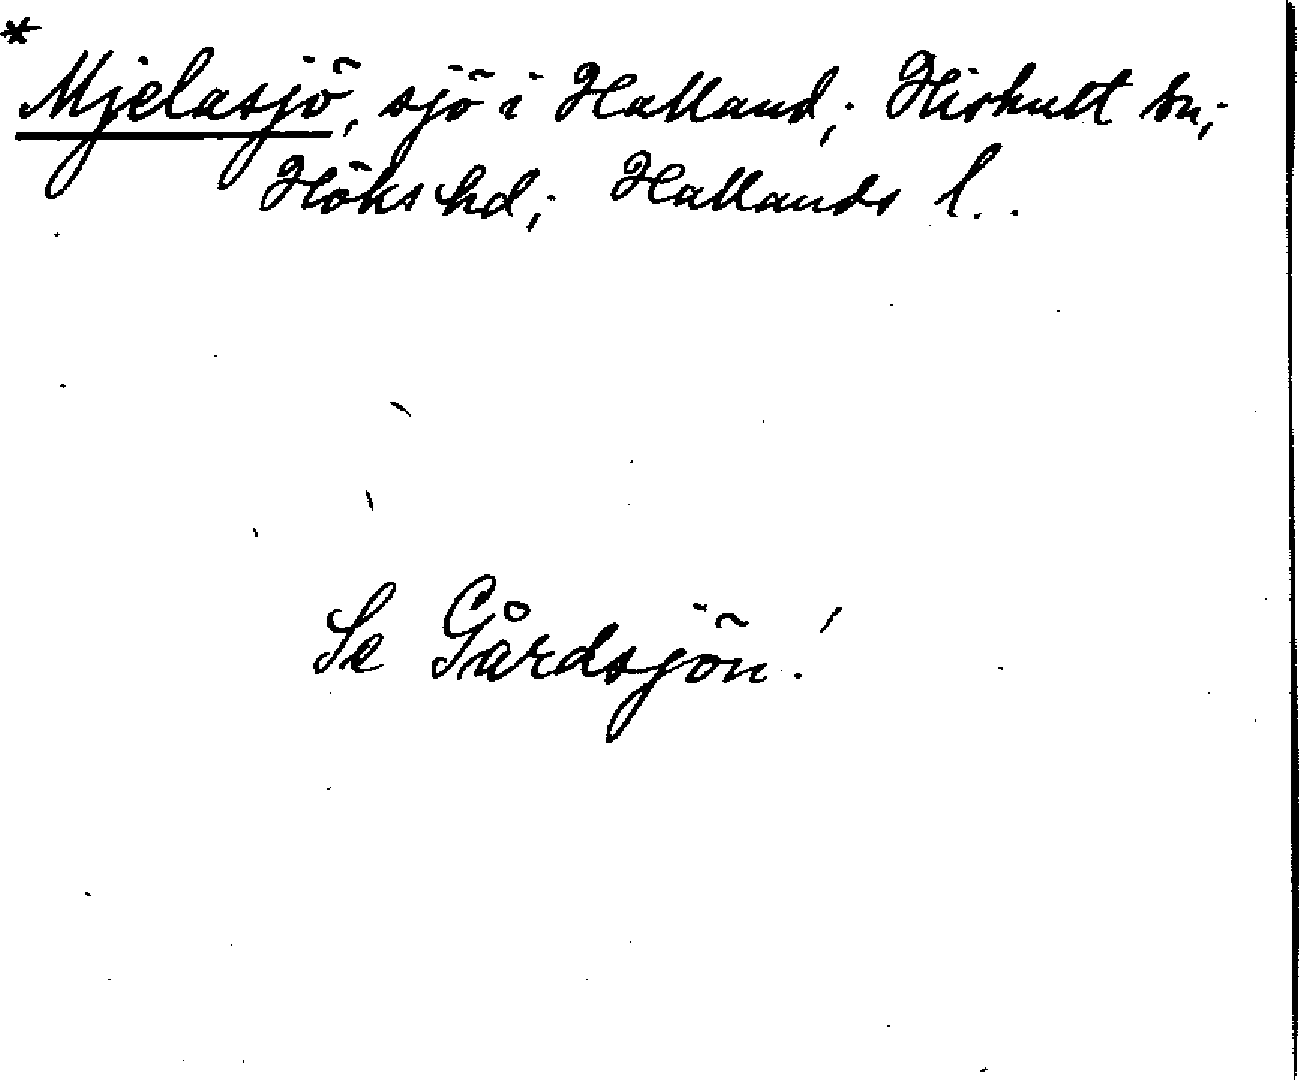 * Mjelasjö, sjö i Halland; Hishult sn;
Höks hd; Hallands l..
Se Gårdsjön!